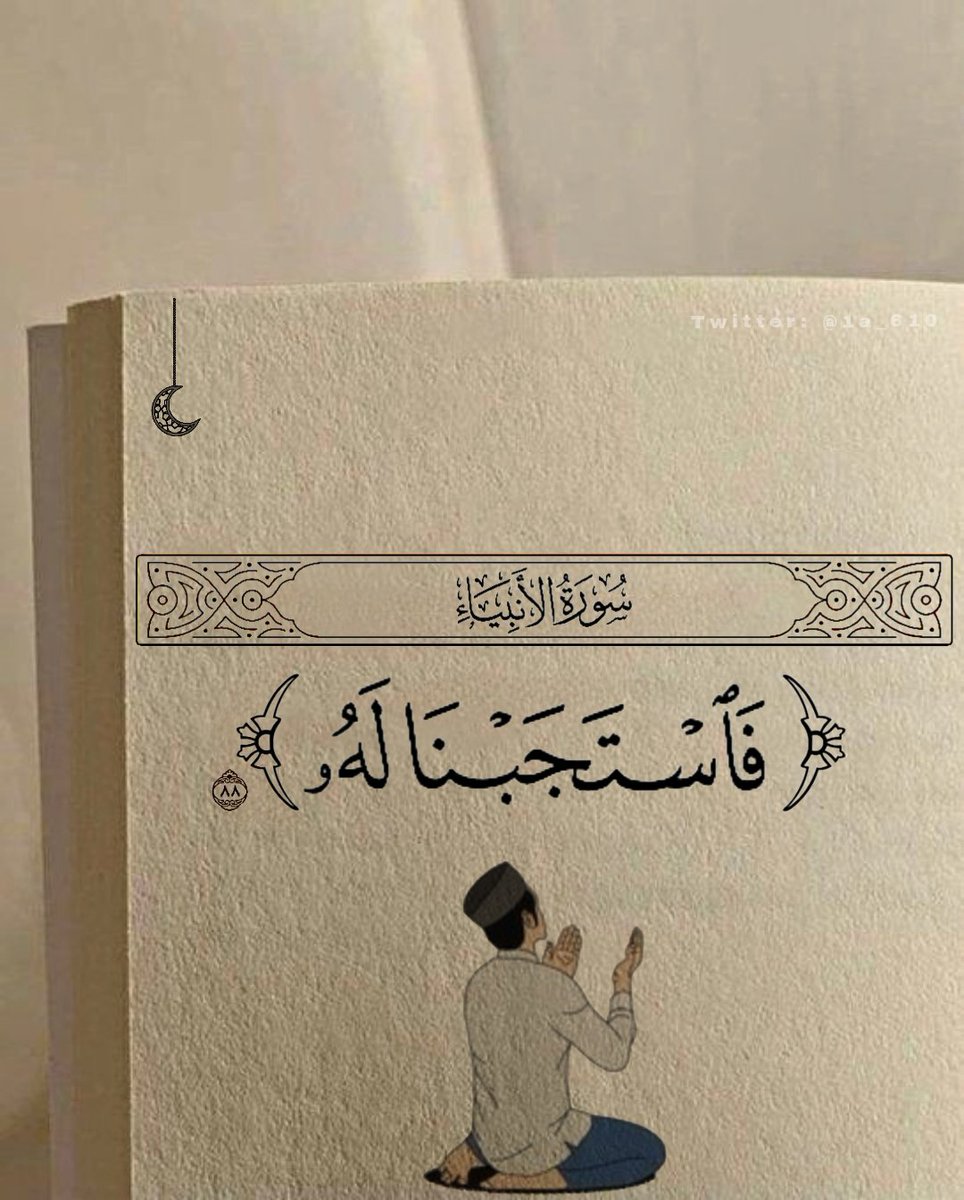 Twitter: @1a_610
سُورَةُ الأَنبِيَاءِ
﴿ فَٱسْتَجَبْنَا لَهُۥ ﴾ ٨٨